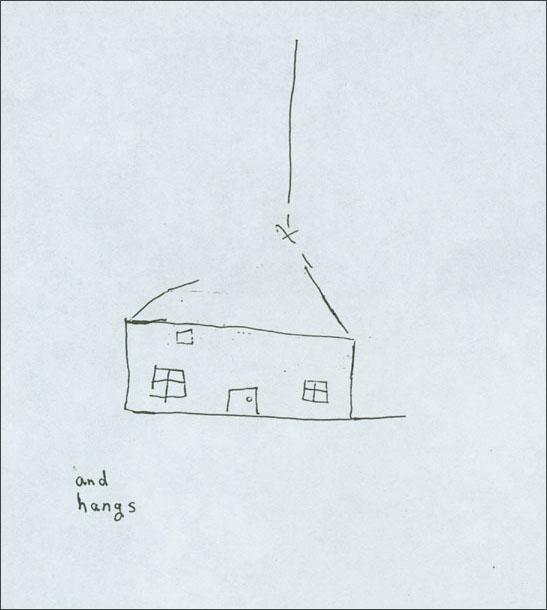 and
hangs